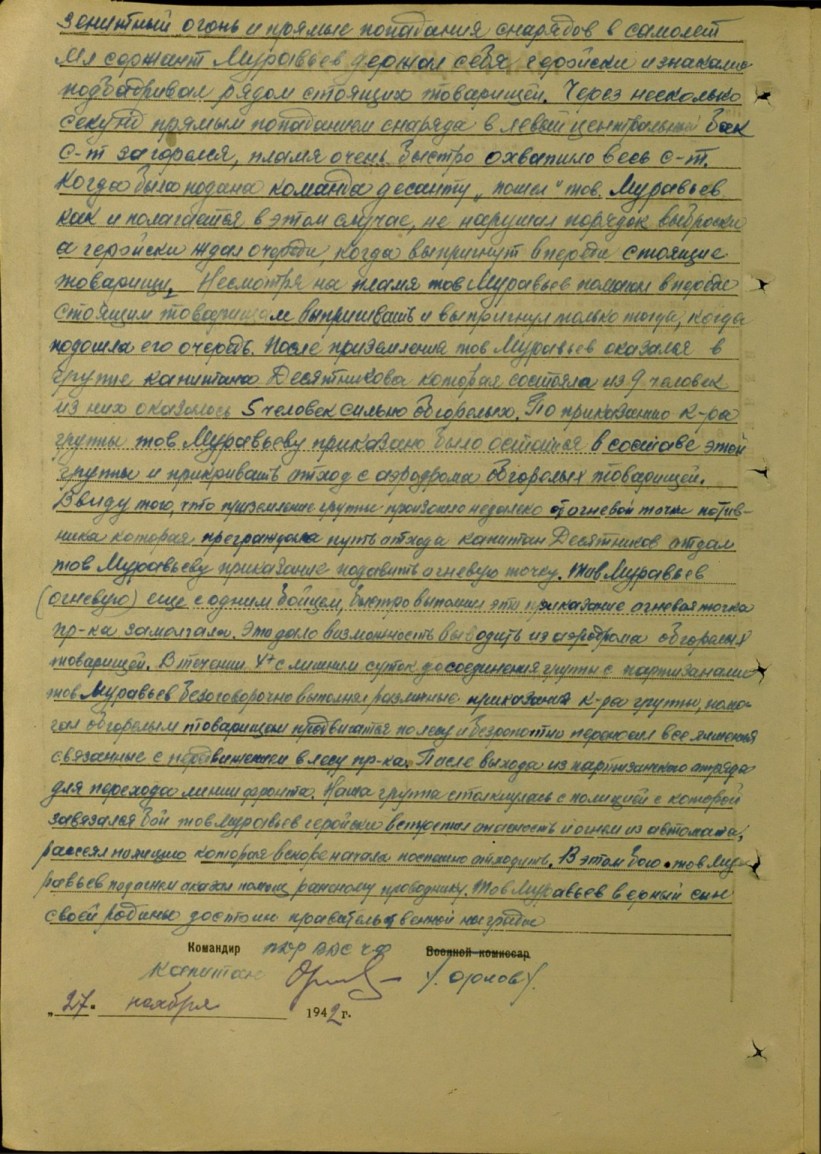 зенитный огонь и прямые попадания снарядов в самолет
Мл сержант Муравьев держал себя геройски и знаками
подбадривал рядом стоящих товарищей. Через несколько
секунд прямым попаданием снаряда в левый центральный бак
с-т загорелся, пламя очень быстро охватило весь с-т.
Когда была подана команда десанту "пошел" тов. Муравьев
как и полагается в этом случае, не нарушал порядок выброски
а геройски ждал очереди, когда выпригнут впереди стоящие
товарищи. Несмотря на пламя тов Муравьев помогал впереди
стоящим товарищам выпригивать и выпригнул только тогда, когда
подошла его очередь. После приземления тов Муравьев оказался в
группе капитана Десятникова которая состояла из 9 человек
из них оказалось 5 человек сильно обгорелых. По приказанию к-ра
группы тов Муравьеву приказано было остаться в составе этой
группы и прикривать отход с аэродрома обгорелых товарищей.
Ввиду того, что приземление группы произошло недалеко от огневой точки против-
ника которая преграждала путь отхода капитан Десятников отдал
тов Муравьеву приказание подавить огневую точку. Тов Муравьев
(огневую) еще с одним бойцем, быстро выполнил эти приказание огневая точка
пр-ка замолчала. Это дало возможность выводить из аэродрома обгорелых
товарищей. В течении 4х с лишним суток до соединения группы с партизанами
тов Муравьев безоговорочно выполнял различные приказания к-ра группы, помо-
гал обгорелым товарищам продвигатся по лесу и безропотно переносил все лишения
связанные с передвижением в лесу пр-ка. После выхода из партизанского отряда
для перехода линии фронта. Наша группа столкнулась с полицией с которой
завязался бой тов Муравьев геройски встретил опасность и огнем из автомата,
рассеял полицию которая вскоре начала поспешно отходить. В этом бою тов Му-
равьев под огнем оказал помощь раненому проводнику. Тов Муравьев верный сын
своей родины достоин правительственной награды
Командир ПКР ВВС ЧФ Военный комиссар
Капитан /Орлов/.
„27" ноября 1942 г.